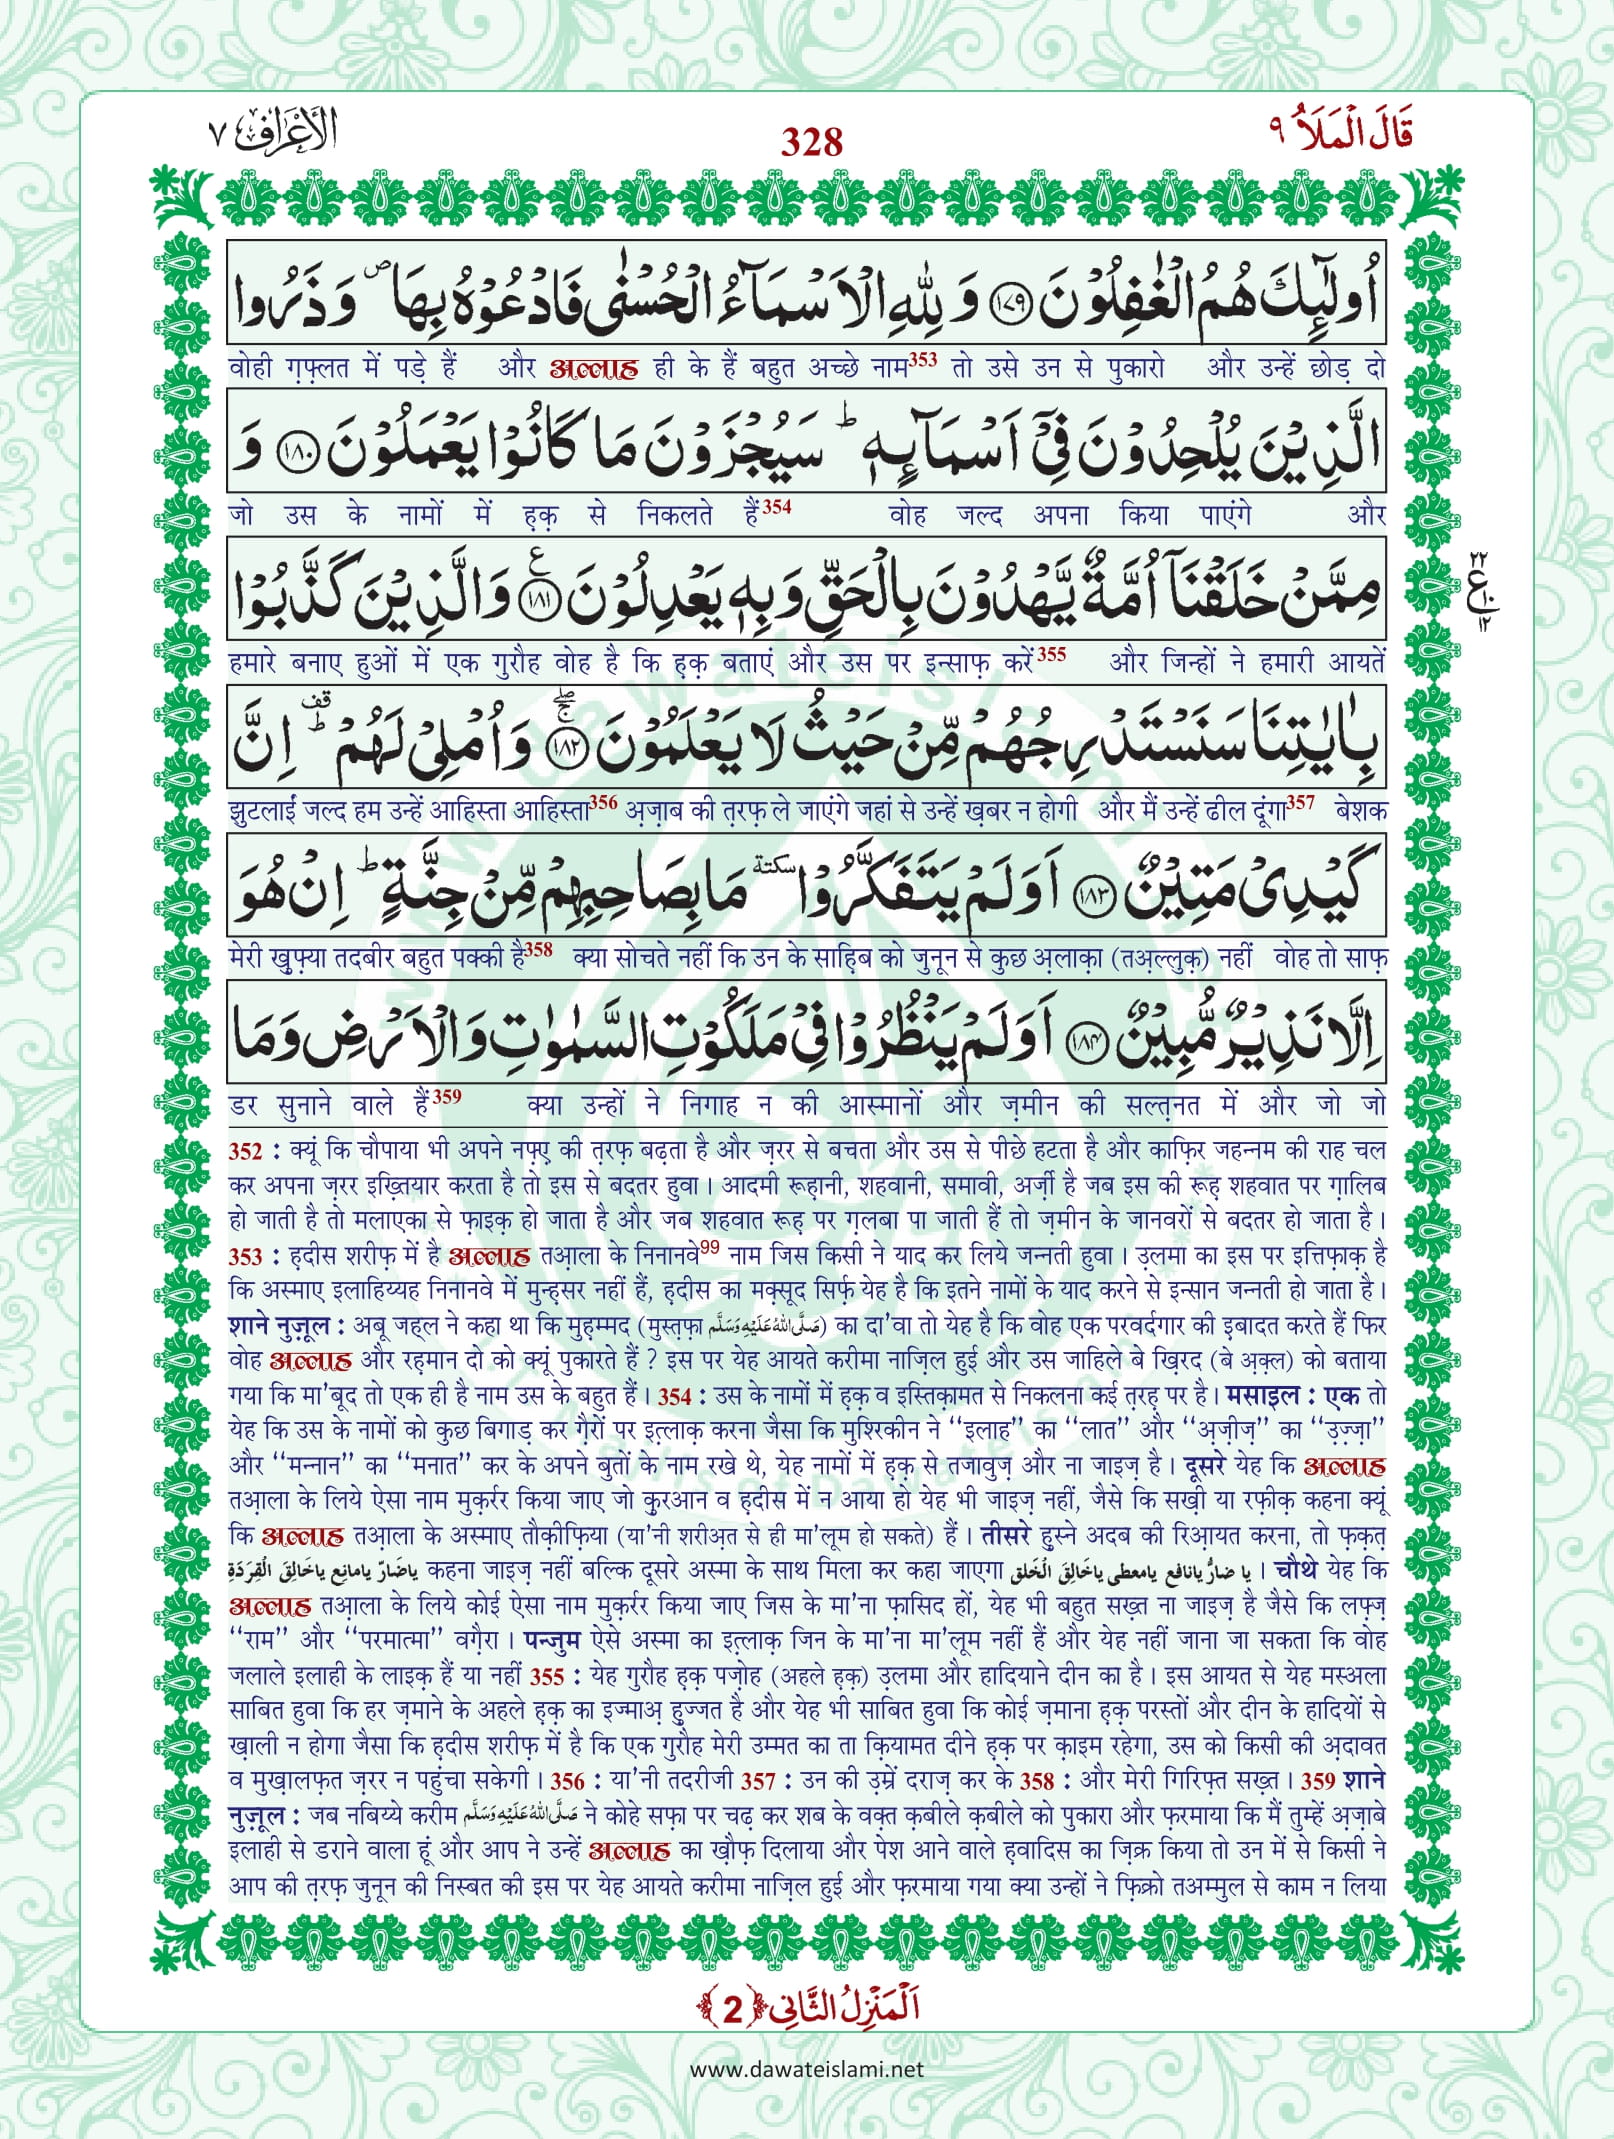 قَالَ الْمَلَاُ ٩
328
الْاَعْرَاف ٧
اُولٰٓىِٕكَ هُمُ الْغٰفِلُوْنَ ﴿۱۷۹﴾ وَ لِلّٰهِ الْاَسْمَآءُ الْحُسْنٰى فَادْعُوْهُ بِهَا ۪ وَ ذَرُوا
वोही ग़फ़्लत में पड़े हैं और अल्लाह ही के हैं बहुत अच्छे नाम353 तो उसे उन से पुकारो और उन्हें छोड़ दो
الَّذِیْنَ یُلْحِدُوْنَ فِیْۤ اَسْمَآىِٕهٖ ؕ سَیُجْزَوْنَ مَا كَانُوْا یَعْمَلُوْنَ ﴿۱۸۰﴾ وَ
जो उस के नामों में ह़क़ से निकलते हैं354 वोह जल्द अपना किया पाएंगे और
مِمَّنْ خَلَقْنَاۤ اُمَّةٌ یَّهْدُوْنَ بِالْحَقِّ وَ بِهٖ یَعْدِلُوْنَ ﴿۱۸۱﴾ۧ وَ الَّذِیْنَ كَذَّبُوْا
٢٢ ع ١٠ ١٢
हमारे बनाए हुओं में एक गुरौह वोह है कि ह़क़ बताएं और उस पर इन्साफ़ करें355 और जिन्हों ने हमारी आयतें
بِاٰیٰتِنَا سَنَسْتَدْرِجُهُمْ مِّنْ حَیْثُ لَا یَعْلَمُوْنَ ﴿۱۸۲﴾ۚۖ وَ اُمْلِیْ لَهُمْ ؕ قف اِنَّ
झुटलाईं जल्द हम उन्हें आहिस्ता आहिस्ता356 अ़ज़ाब की त़रफ़ ले जाएंगे जहां से उन्हें ख़बर न होगी और मैं उन्हें ढील दूंगा357 बेशक
كَیْدِیْ مَتِیْنٌ ﴿۱۸۳﴾ اَوَ لَمْ یَتَفَكَّرُوْا سكتة مَا بِصَاحِبِهِمْ مِّنْ جِنَّةٍ ؕ اِنْ هُوَ
मेरी खुफ़्या तदबीर बहुत पक्की है358 क्या सोचते नहीं कि उन के साह़िब को जुनून से कुछ अ़लाक़ा (तअ़ल्लुक़) नहीं वोह तो साफ़
اِلَّا نَذِیْرٌ مُّبِیْنٌ ﴿۱۸۴﴾ اَوَ لَمْ یَنْظُرُوْا فِیْ مَلَكُوْتِ السَّمٰوٰتِ وَ الْاَرْضِ وَ مَا
डर सुनाने वाले हैं359 क्या उन्हों ने निगाह न की आस्मानों और ज़मीन की सल्त़नत में और जो जो
352 : क्यूं कि चौपाया भी अपने नफ़्ए की त़रफ़ बढ़ता है और ज़रर से बचता और उस से पीछे हटता है और काफ़िर जहन्नम की राह चल
कर अपना ज़रर इख़्तियार करता है तो इस से बदतर हुवा । आदमी रूह़ानी, शहवानी, समावी, अर्ज़ी है जब इस की रूह़ शहवात पर ग़ालिब
हो जाती है तो मलाएका से फ़ाइक़ हो जाता है और जब शहवात रूह़ पर ग़लबा पा जाती हैं तो ज़मीन के जानवरों से बदतर हो जाता है ।
353 : ह़दीस शरीफ़ में है अल्लाह तआ़ला के निनानवे99 नाम जिस किसी ने याद कर लिये जन्नती हुवा । उ़लमा का इस पर इत्तिफ़ाक़ है
कि अस्माए इलाहिय्यह निनानवे में मुन्ह़सर नहीं हैं, ह़दीस का मक़्सूद सिर्फ़ येह है कि इतने नामों के याद करने से इन्सान जन्नती हो जाता है ।
शाने नुज़ूल : अबू जह्ल ने कहा था कि मुह़म्मद (मुस्त़फ़ा صَلَّى اللهُ عَلَيْهِ وَسَلَّم) का दा'वा तो येह है कि वोह एक परवर्दगार की इबादत करते हैं फिर
वोह अल्लाह और रह़मान दो को क्यूं पुकारते हैं ? इस पर येह आयते करीमा नाज़िल हुई और उस जाहिले बे ख़िरद (बे अ़क़्ल) को बताया
गया कि मा'बूद तो एक ही है नाम उस के बहुत हैं । 354 : उस के नामों में ह़क़ व इस्तिक़ामत से निकलना कई त़रह़ पर है । मसाइल : एक तो
येह कि उस के नामों को कुछ बिगाड़ कर ग़ैरों पर इत़्लाक़ करना जैसा कि मुश्रिकीन ने ‘‘इलाह’’ का ‘‘लात’’ और ‘‘अ़ज़ीज़’’ का ‘‘उ़ज़्ज़ा’’
और ‘‘मन्नान’’ का ‘‘मनात’’ कर के अपने बुतों के नाम रखे थे, येह नामों में ह़क़ से तजावुज़ और ना जाइज़ है । दूसरे येह कि अल्लाह
तआ़ला के लिये ऐसा नाम मुक़र्रर किया जाए जो क़ुरआन व ह़दीस में न आया हो येह भी जाइज़ नहीं, जैसे कि सख़ी या रफ़ीक़ कहना क्यूं
कि अल्लाह तआ़ला के अस्माए तौक़ीफ़िया (या'नी शरीअ़त से ही मा'लूम हो सकते) हैं । तीसरे हुस्ने अदब की रिआ़यत करना, तो फ़क़त़
ياضَارّ يامانِع ياخَالِقَ الْقِرَدَةِ कहना जाइज़ नहीं बल्कि दूसरे अस्मा के साथ मिला कर कहा जाएगा يا ضارُّ يانافع يامعطى ياخَالِقَ الْخَلق । चौथे येह कि
अल्लाह तआ़ला के लिये कोई ऐसा नाम मुक़र्रर किया जाए जिस के मा'ना फ़ासिद हों, येह भी बहुत सख़्त ना जाइज़ है जैसे कि लफ़्ज़
‘‘राम’’ और ‘‘परमात्मा’’ वग़ैरा । पन्जुम ऐसे अस्मा का इत़्लाक़ जिन के मा'ना मा'लूम नहीं हैं और येह नहीं जाना जा सकता कि वोह
जलाले इलाही के लाइक़ हैं या नहीं 355 : येह गुरौह ह़क़ पज़ोह (अहले ह़क़) उ़लमा और हादियाने दीन का है । इस आयत से येह मस्अला
साबित हुवा कि हर ज़माने के अहले ह़क़ का इज्माअ़ हुज्जत है और येह भी साबित हुवा कि कोई ज़माना ह़क़ परस्तों और दीन के हादियों से
ख़ाली न होगा जैसा कि ह़दीस शरीफ़ में है कि एक गुरौह मेरी उम्मत का ता क़ियामत दीने ह़क़ पर क़ाइम रहेगा, उस को किसी की अ़दावत
व मुख़ालफ़त ज़रर न पहुंचा सकेगी । 356 : या'नी तदरीजी 357 : उन की उ़म्रें दराज़ कर के 358 : और मेरी गिरिफ़्त सख़्त । 359 शाने
नुज़ूल : जब नबिय्ये करीम صَلَّى اللهُ عَلَيْهِ وَسَلَّم ने कोहे सफ़ा पर चढ़ कर शब के वक़्त क़बीले क़बीले को पुकारा और फ़रमाया कि मैं तुम्हें अ़ज़ाबे
इलाही से डराने वाला हूं और आप ने उन्हें अल्लाह का ख़ौफ़ दिलाया और पेश आने वाले ह़वादिस का ज़िक्र किया तो उन में से किसी ने
आप की त़रफ़ जुनून की निस्बत की इस पर येह आयते करीमा नाज़िल हुई और फ़रमाया गया क्या उन्हों ने फ़िक्रो तअम्मुल से काम न लिया
اَلْمَنْزِلُ الثَّانِی ﴿2﴾
www.dawateislami.net